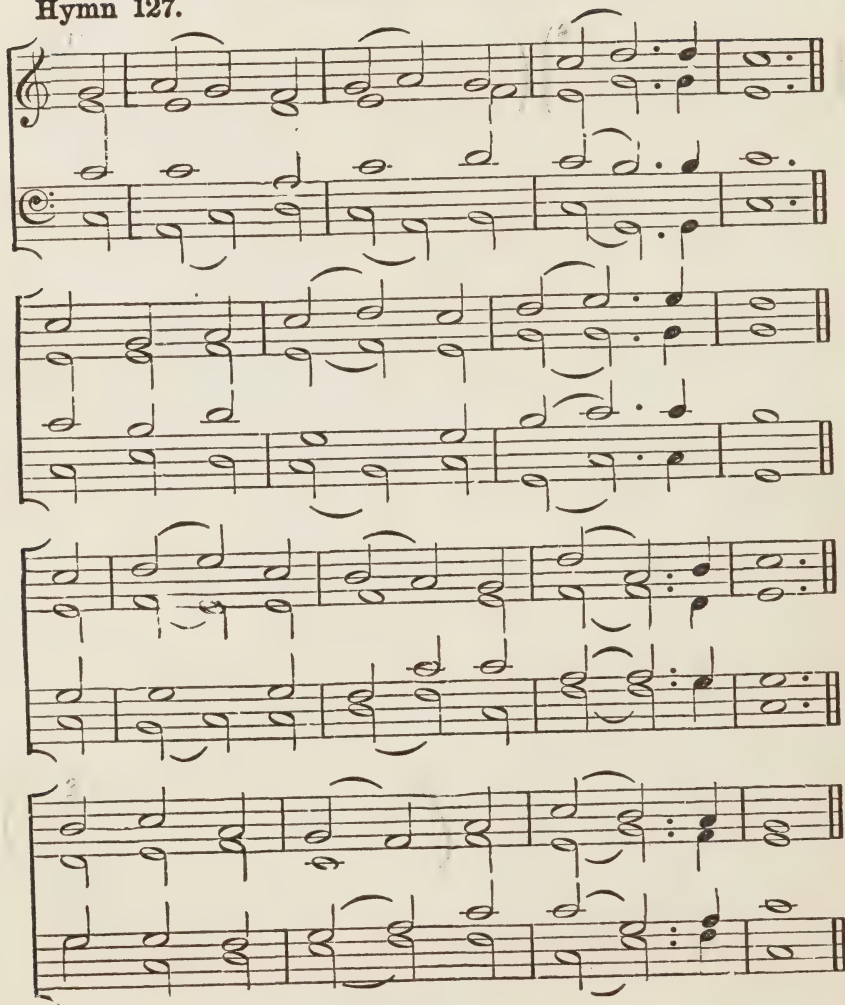 Hymn 127.